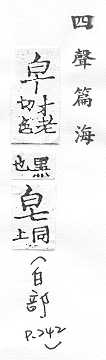 四聲篇海
皁才老切色黑也皂同上(白部 P.242)